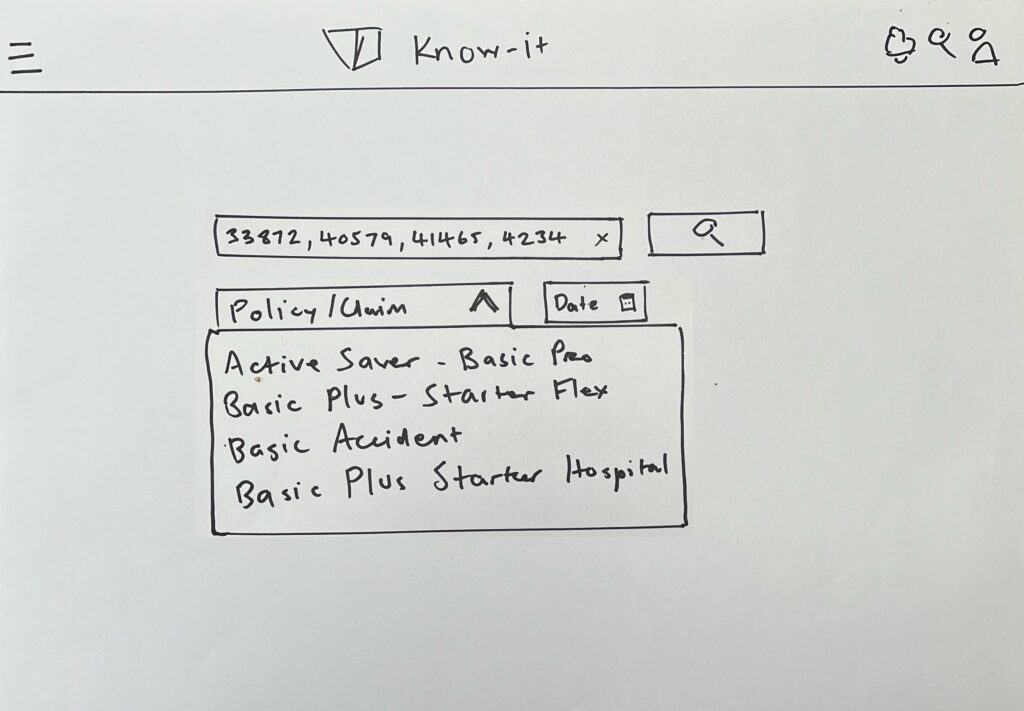 Know-it
33872, 40579, 41465, 4234 x
Policy/Claim
Date
Active Saver - Basic Pro
Basic Plus - Starter Flex
Basic Accident
Basic Plus Starter Hospital